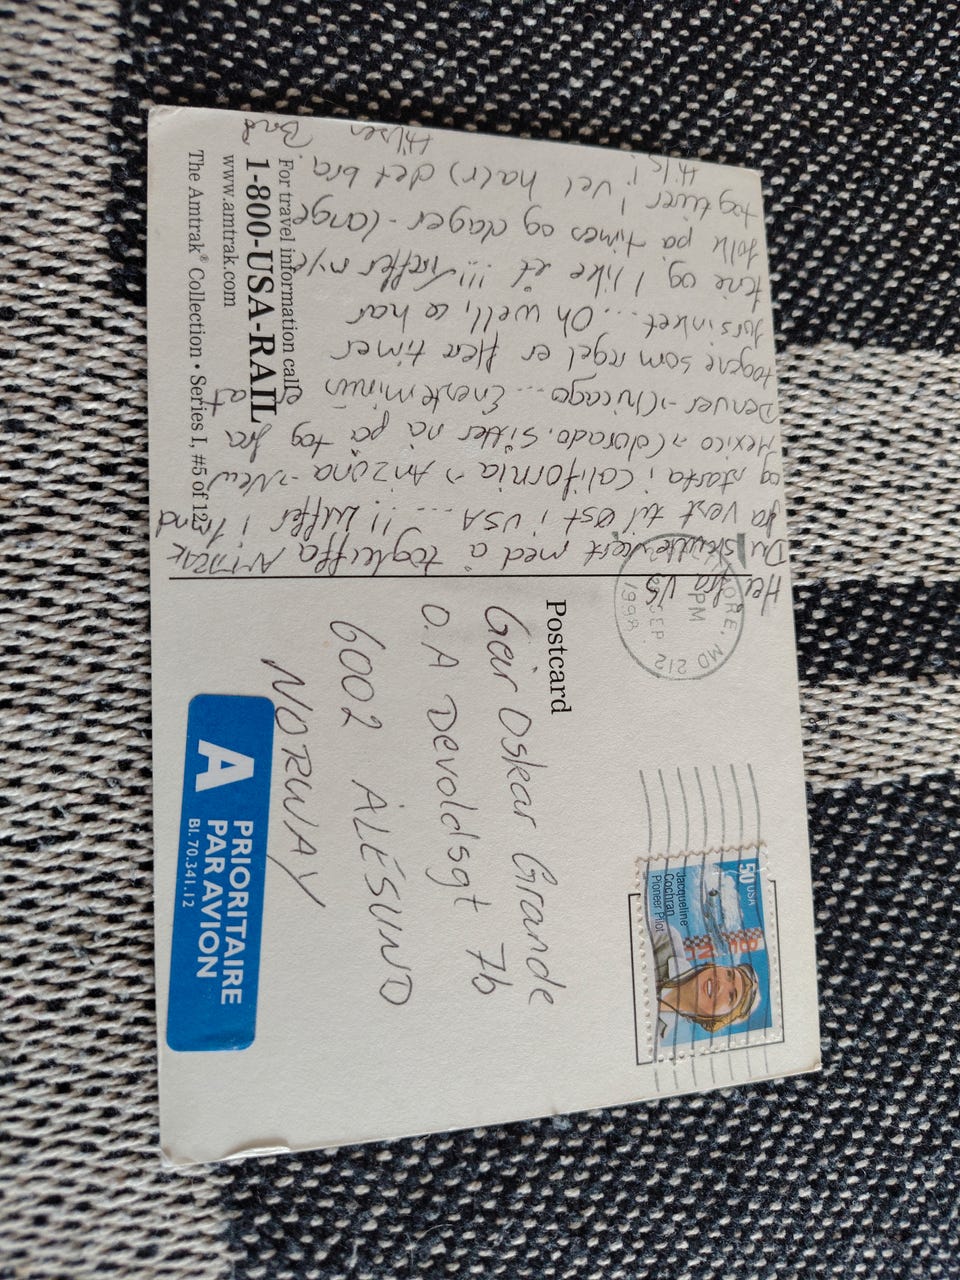 Hei fra US
Du skulle vært med å togluffa AMTRAK
fra vest til øst i USA .... !! Luffer i 1 mnd
og starta i California → Arizona → New
Mexico → Colorado. Sitter nå på tog fra
Denver → Chicago... Eneste minus er at
togene som regel er flere timer
forsinket.... Oh well, æ har
ferie og I like it !!! Treffer mye
folk på times og dager-lange
togturer! Vel ha(r) det bra.
Hils!
Hilsen Bård
For travel information call
1-800-USA-RAIL
www.amtrak.com
The Amtrak® Collection • Series I, #5 of 12
Postcard
Geir Oskar Grande
O.A Devoldsgt 7b
6002 ÅLESUND
NORWAY
A PRIORITAIRE
PAR AVION
Bl. 70.341.12
MORE, MD 212
PM
SEP
1998
50 USA
Jacqueline
Cochran
Pioneer Pilot